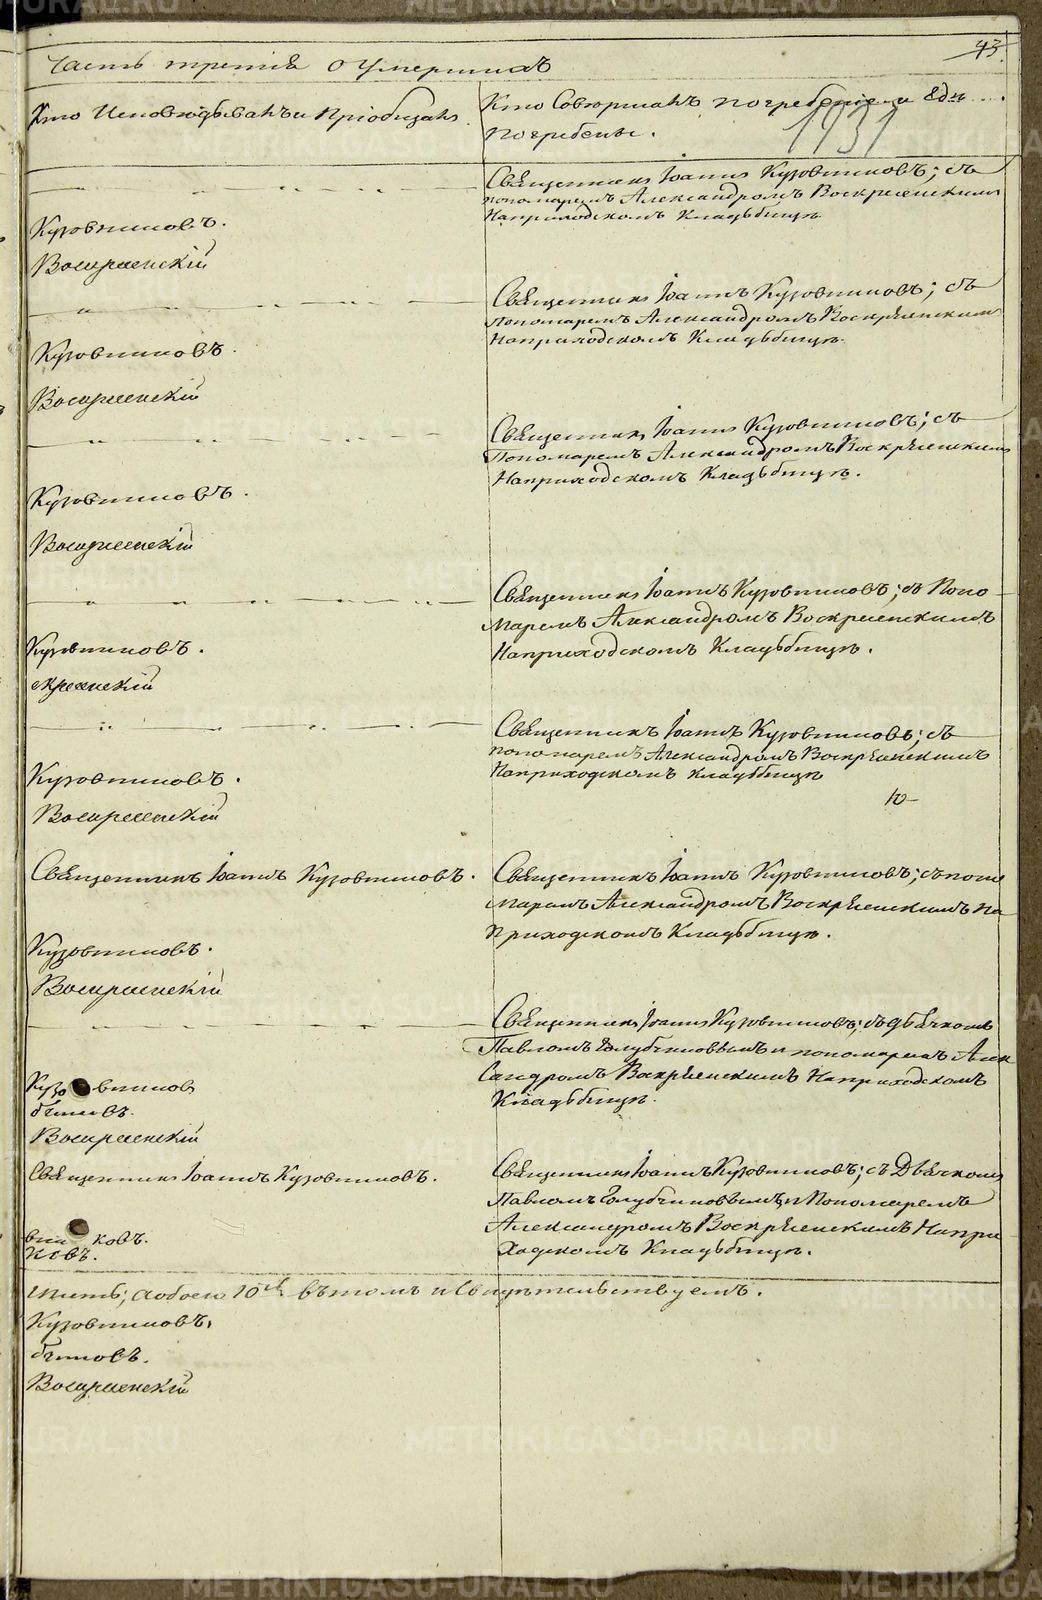 43.
Часть третія о умершихъ
Кто Исповѣдывалъ и Пріобщалъ.
Кто Совершалъ погребеніе и гдѣ
погребены.
1931
Священникъ Іоаннъ Кузовниковъ; съ
пономаремъ Александромъ Воскресенскимъ
На приходскомъ Кладьбищѣ
Кузовниковъ.
Воскресенскій
Священникъ Іоаннъ Кузовниковъ; съ
пономаремъ Александромъ Воскресенскимъ
На приходскомъ Кладьбищѣ.
Кузовниковъ.
Воскресенскій
Священникъ Іоаннъ Кузовниковъ; съ
Пономаремъ Александромъ Воскресенскимъ
На приходскомъ Кладьбищѣ.
Кузовниковъ.
Воскресенскій
Священникъ Іоаннъ Кузовниковъ; съ Поно-
маремъ Александромъ Воскресенскимъ
На приходскомъ Кладьбищѣ.
Кузовниковъ.
скресенскій
Священникъ Іоаннъ Кузовниковъ; съ
пономаремъ Александромъ Воскресенскимъ
На приходскомъ кладьбищѣ
Кузовниковъ.
Воскресенскій
10
Священникъ Іоаннъ Кузовниковъ.
Священникъ Іоаннъ Кузовниковъ; съ поно
маремъ Александромъ Воскресенскимъ На
приходскомъ Кладьбищѣ.
Кузовниковъ.
Воскресенскій
Священникъ Іоаннъ Кузовниковъ; съ дьячкомъ
Павломъ Голубчиковымъ и пономаремъ Алек
сандромъ Воскресенскимъ На приходскомъ
Кладьбищѣ.
Кузовниковъ
бчиковъ.
Воскресенскій
Священникъ Іоаннъ Кузовниковъ.
Священникъ Іоаннъ Кузовниковъ; съ Дьячкомъ
Павломъ Голубчиковымъ и Пономаремъ
Александромъ Воскресенскимъ На при
ходскомъ Кладьбищѣ.
вниковъ.
ковъ.
шесть; а обоего 10ть въ томъ и Свидѣтельствуемъ.
Кузовниковъ.
бчиковъ.
Воскресенскій
METRIKI.GASO-URAL.RU